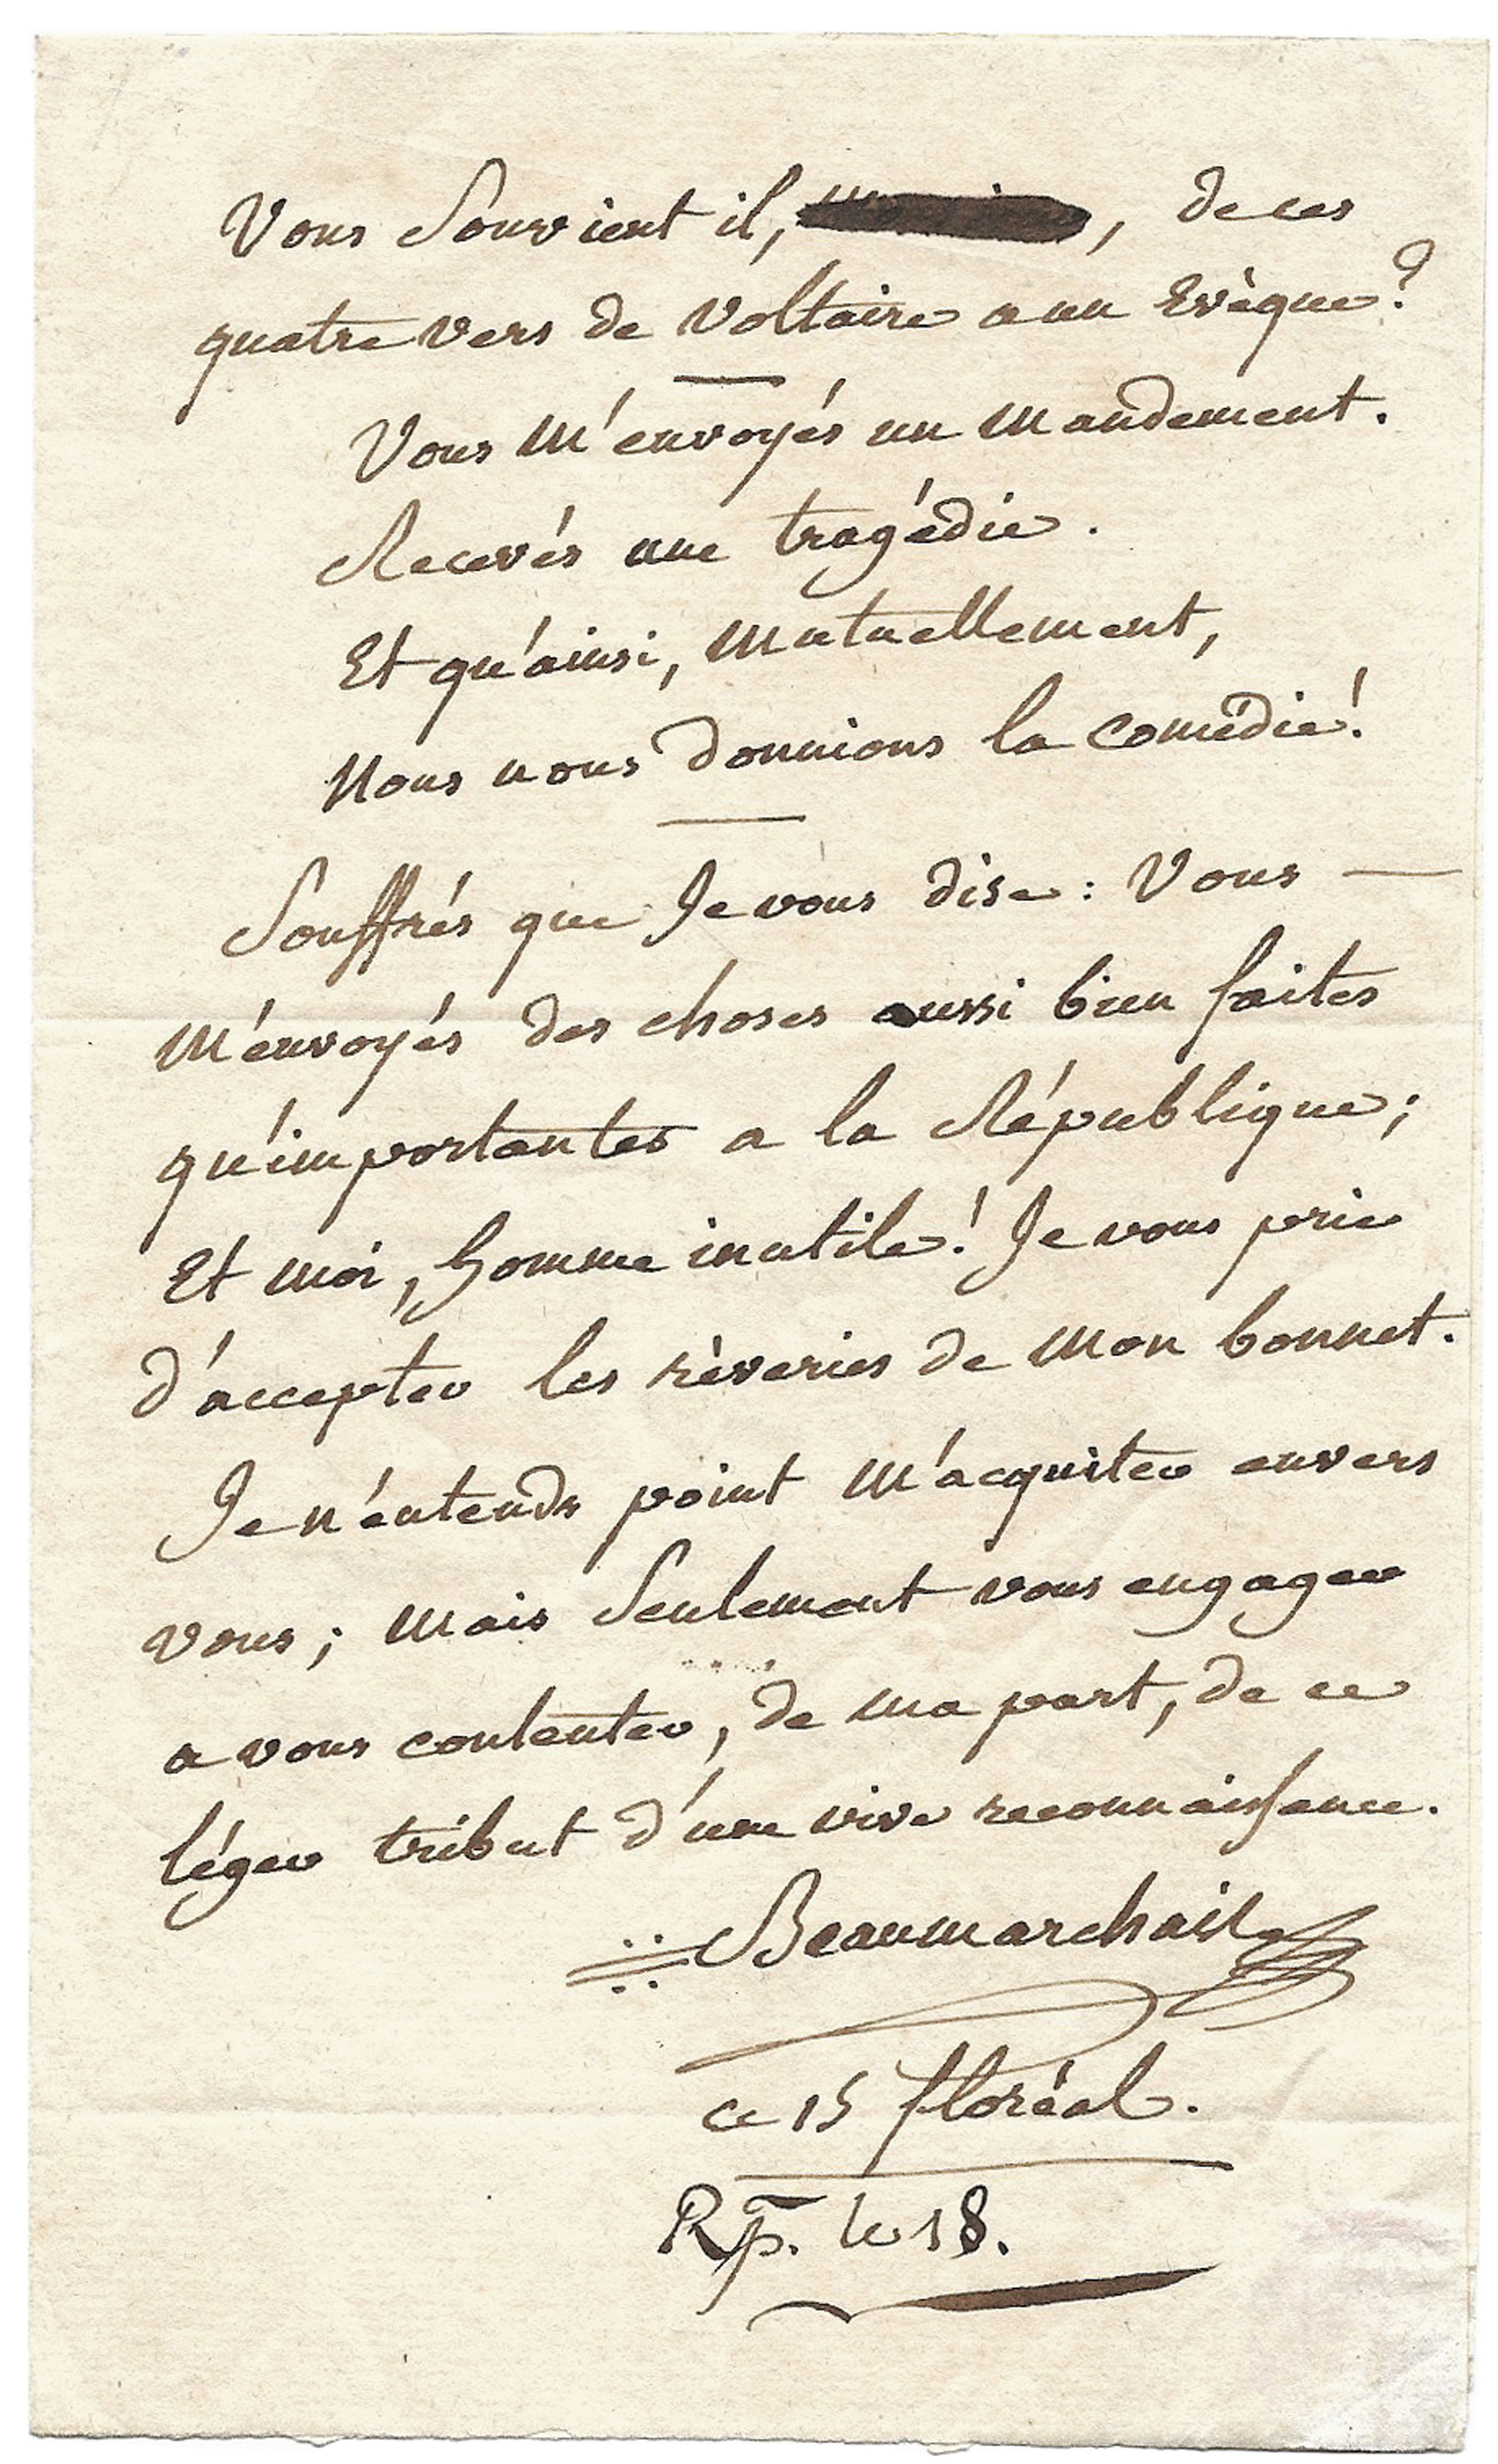 Vous Souvient il, , de ces
quatre vers de Voltaire a un Evèque?
Vous M'envoyés un Mandement.
Recevés une tragédie.
Et qu'ainsi, Mutuellement,
Nous nous donnions la Comédie!
Souffrés que Je vous dise: Vous —
M'envoyés des choses aussi bien faites
qu'importantes a la République;
Et moi, homme inutile! Je vous prie
d'accepter les rèveries de Mon bonnet.
Je n'entends point M'acquiter envers
vous; Mais Seulement vous engager
a vous contenter, de ma part, de ce
léger tribut d'une vive reconnaissance.
Beaumarchais
ce 15 floréal.
Rp. le 18.